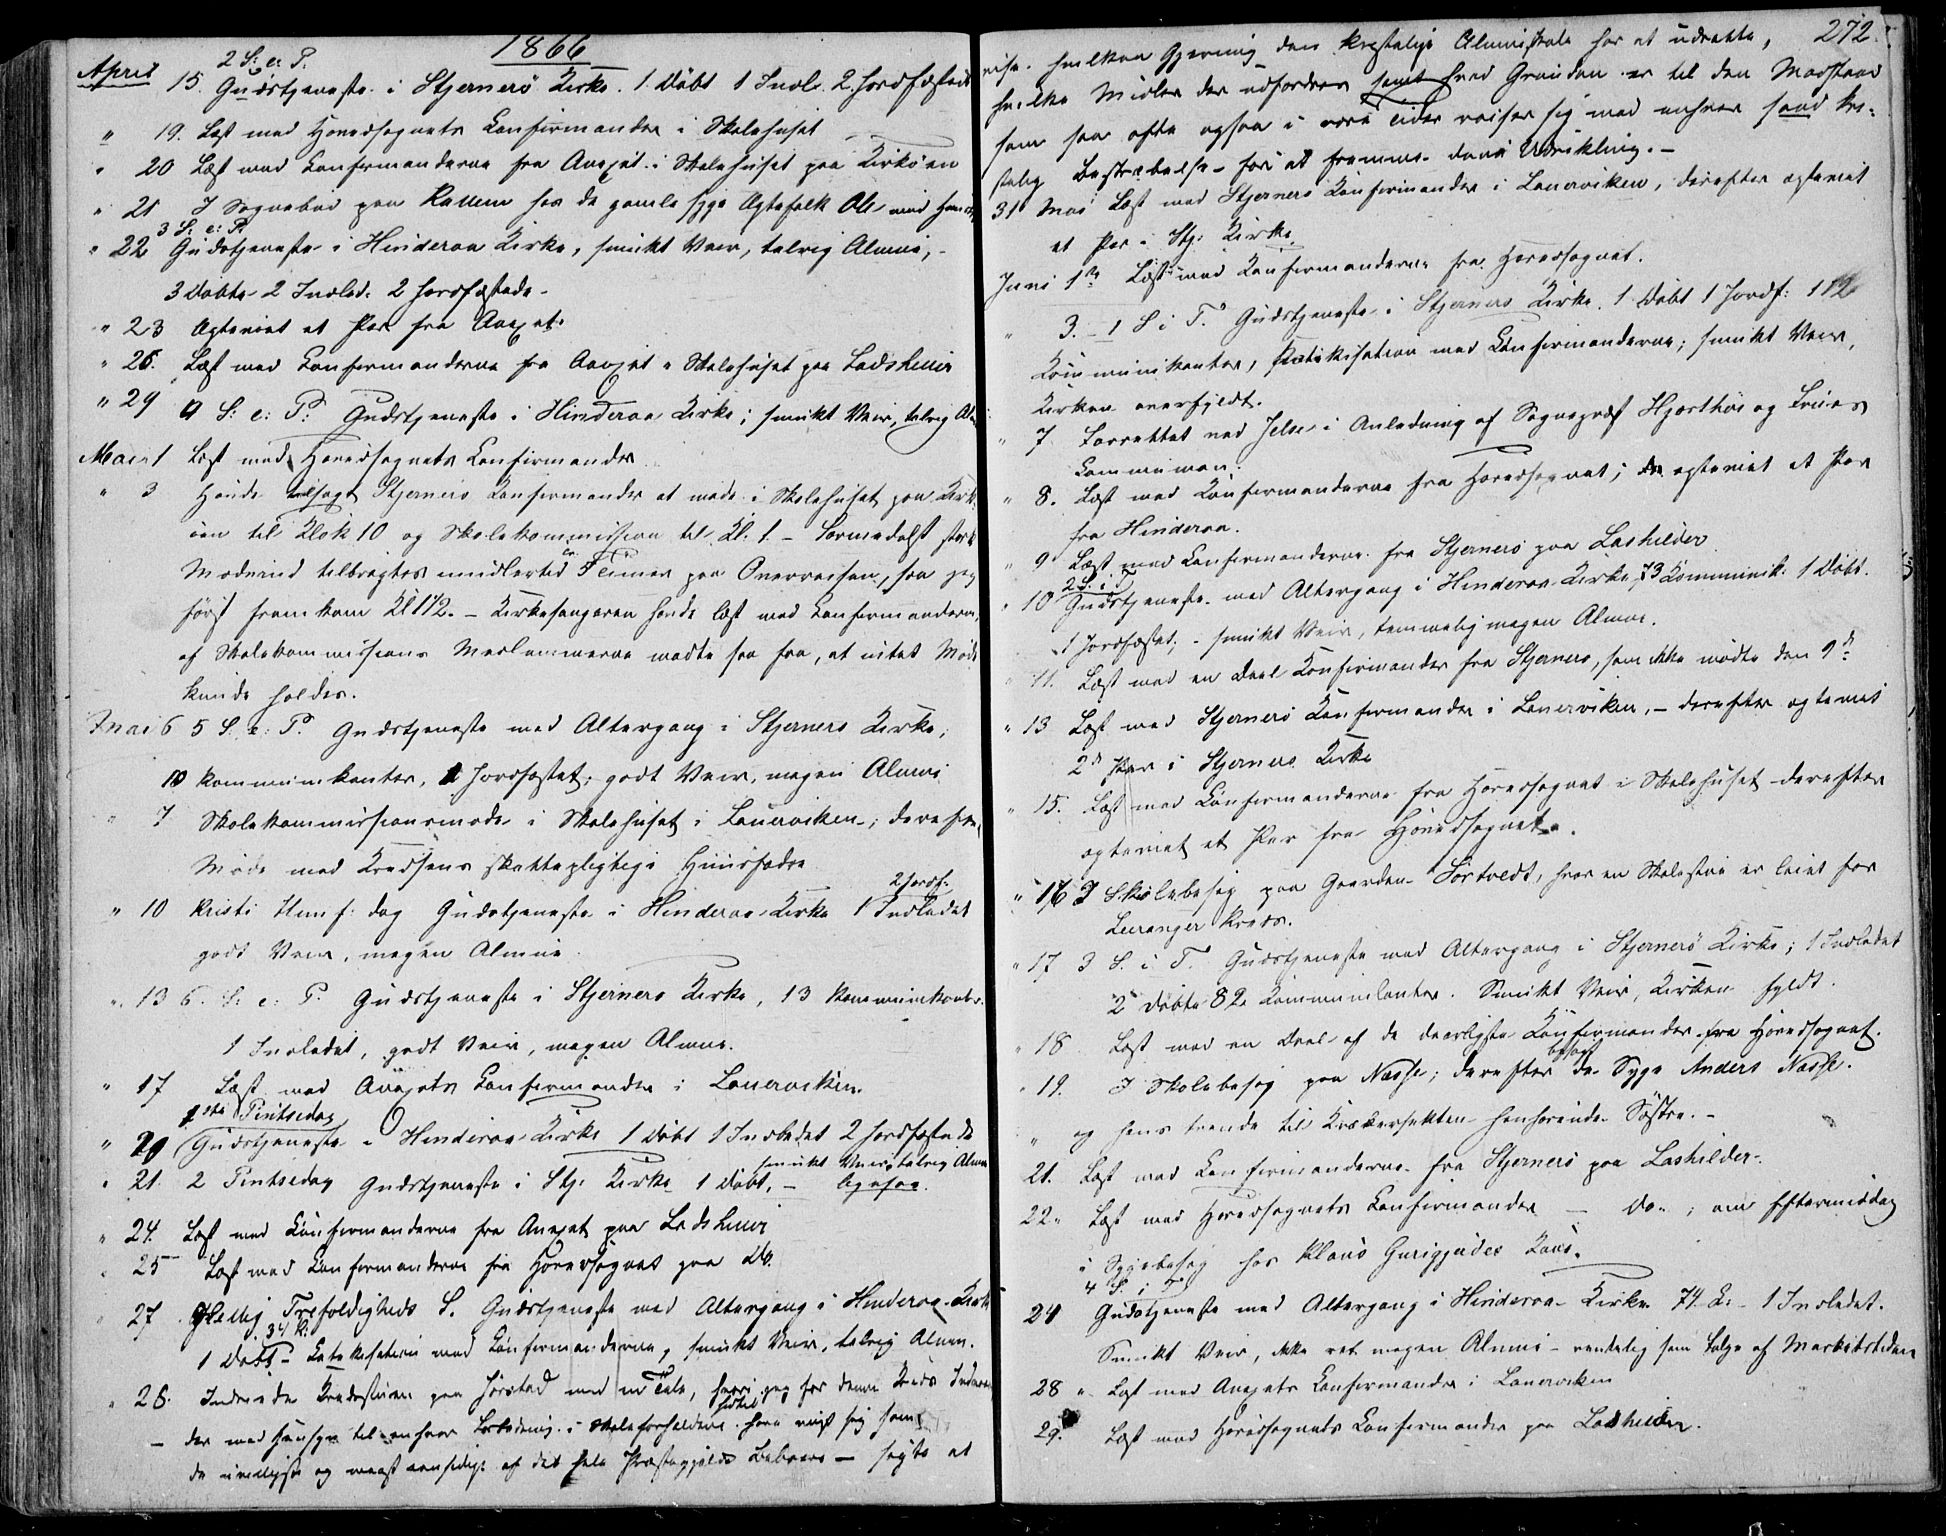 1866
April 2 S: e: P.
15. Gudstjeneste i Stjernerö Kirke. 1 Döbt 1 Indl. 2 Jordfæstede
" 19. Læst med Hovedsognets Konfirmander i Skolehuset
" 20 Læst med Konfirmanderne fra Annexet i Skolehuset paa Kirköen
" 21 I Sognebud paa Ramsnes hos de gamle syge Ægtefolk Ole
3 S: e: P.
" 22 Gudstjeneste i Hinderaa Kirke, smukt Veir, talrig Almue, -
3 Döbte 2 Indled: 2 Jordfæstede -
" 23 Ægteviet et Par fra Annexet.
" 26. Læst med Konfirmanderne fra Annexet i Skolehuset paa Ladshuus
" 29 4 S: e: P. Gudstjeneste i Hinderaa Kirke; smukt Veir, talrig Alm
Mai 1 Læst med Hovedsognets Konfirmander
" 3 Havde tilsagt Stjernerö Konfirmander at möde i Skolehuset paa Kirk
öen til Klok 10 og Skolekommission til Kl. 1 - Formedelst stærk
Modvind tilbragtes imidlertid Timer paa Overreisen, saa jeg
förſt fremkom Kl 1 1/2. - Kirkesangeren havde læst med Konfirmanderne,
af Skolekommissions Medlemmerne mödte saa faa, at intet Möde
kunde holdes.
Mai 6 5 S. e: P. Gudstjeneste med Altergang i Stjernerö Kirke,
10 Kommunikanter, 1 Jordfæstet; godt Veir, megen Almue
" 7 Skolekommissionsmöde i Skolehuset i Lauerviken; derefter
Möde med Kredsens skattepligtige Huusfædre
2 Jordf.
" 10 Kristi Himf: dag Gudstjeneste i Hinderaa Kirke 1 Indledet
godt Veir, megen Almue
" 13 6. S: e: P. Gudstjeneste i Stjernerö Kirke, 13 Kommunikanter.
1 Indledet, godt Veir, megen Almue.
" 17 Læst med Annexets Konfirmander i Lauerviken.
1ste Pintsedag
" 20 Gudstjeneste i Hinderaa Kirke 1 Döbt 1 Indledet 2 Jordfæstede
smukt Veir, talrig Almue
" 21. 2 Pintsedag Gudstjeneste i Stj. Kirke 1 Döbt, - ligesaa.
" 24. Læst med Konfirmanderne fra Annexet paa Ladshuus
" 25 Læst med Konfirmanderne fra Hovedsognet paa Do.
" 27 Hellig Trefoldigheds S. Gudstjeneste med Altergang i Hinderaa Kirke
34 K.
1 Döbt - Katekisation med Konfirmanderne, smukt Veir, talrig Almue.
" 28. Indviede Kredsstuen paa Hörstad med en Tale, hvori jeg for denne Kreds Indvaa
- der med Hensyn til enhver Forbedring i Skoleforholdene hidtil have viist sig som
de uvilligste og meest af det hele Præstegjelds Beboere - sögte at
272.
vise hvilken Gjerning den kristelige Almueskole har at udrette,
hvilke Midler der udfordres samt hvad Grunden er til den Modstand
som saa ofte ogsaa i vore Tider reiser sig mod enhver sand kri-
stelig Bestræbelse for at fremme dens Udvikling. -
31 Mai Læst med Stjernerö Konfirmander i Lauerviken, derefter ægteviet
et Par i Stj: Kirke.
Juni 1ste Læst med Konfirmanderne fra Hovedsognet.
" 3. - 1 S i T. Gudstjeneste i Stjernerö Kirke. 1 Döbt 1 Jordf: 112
Kommunikanter, Katekisation med Konfirmanderne; smukt Veir,
Kirken overfyldt.
" 7 Forrettet ved Jelse i Anledning af Sognepræst Hjorthöi og Frues
Kommunion.
" 8. Læst med Konfirmanderne fra Hovedsognet; ægteviet et Par
fra Hinderaa.
" 9 Læst med Konfirmanderne fra Stjernerö paa Lashilder
2 S. i T.
" 10 Gudstjeneste med Altergang i Hinderaa Kirke 73 Kommunik: 1 Döbt.
1 Jordfæstet; - smukt Veir, temmelig megen Almue.
" 11. Læst med en Deel Konfirmander fra Stjernerö, som ikke mödte den 9de
" 13 Læst med Stjernerö Konfirmander i Lauerviken, - derefter ægteviet
2de Par i Stjernerö Kirke
" 15. Læst med Konfirmanderne fra Hovedsognet i Skolehuset - derefter
ægteviet et Par fra Hovedsognet.
" 16 I Skolebesög paa Gaarden Sörtvedt, hvor en Skolestue er leiet for
Leranger Kreds.
" 17 3 S. i T. Gudstjeneste med Altergang i Stjernerö Kirke; 1 Indledet
2 Döbte 82 Kommunikanter. Smukt Veir, Kirken fyldt.
" 18 Læst med en Deel af de daarligste Konfirmander fra Hovedsognet.
" 19. I Skolebesög paa Næsse; derefter besögt den Syge Anders Næsse.
" og hans tvende til Kvækersekten henhörende Söstre. -
21. Læst med Konfirmanderne fra Stjernerö paa Lashilder.
22. Læst med Hovedsognets Konfirmander - Do. ; om Eftermiddag
i Sygebesög hos Klaus Kone.
4 S. i T.
24 Gudstjeneste med Altergang i Hinderaa Kirke 74 K: - 1 Indledet.
Smukt Veir, ikke ret megen Almue - rimelig som Fölge af Markedstiden
28 " Læst med Annexets Konfirmander i Lauerviken
29. Læst med Hovedsognets Konfirmander paa Ladshilder.